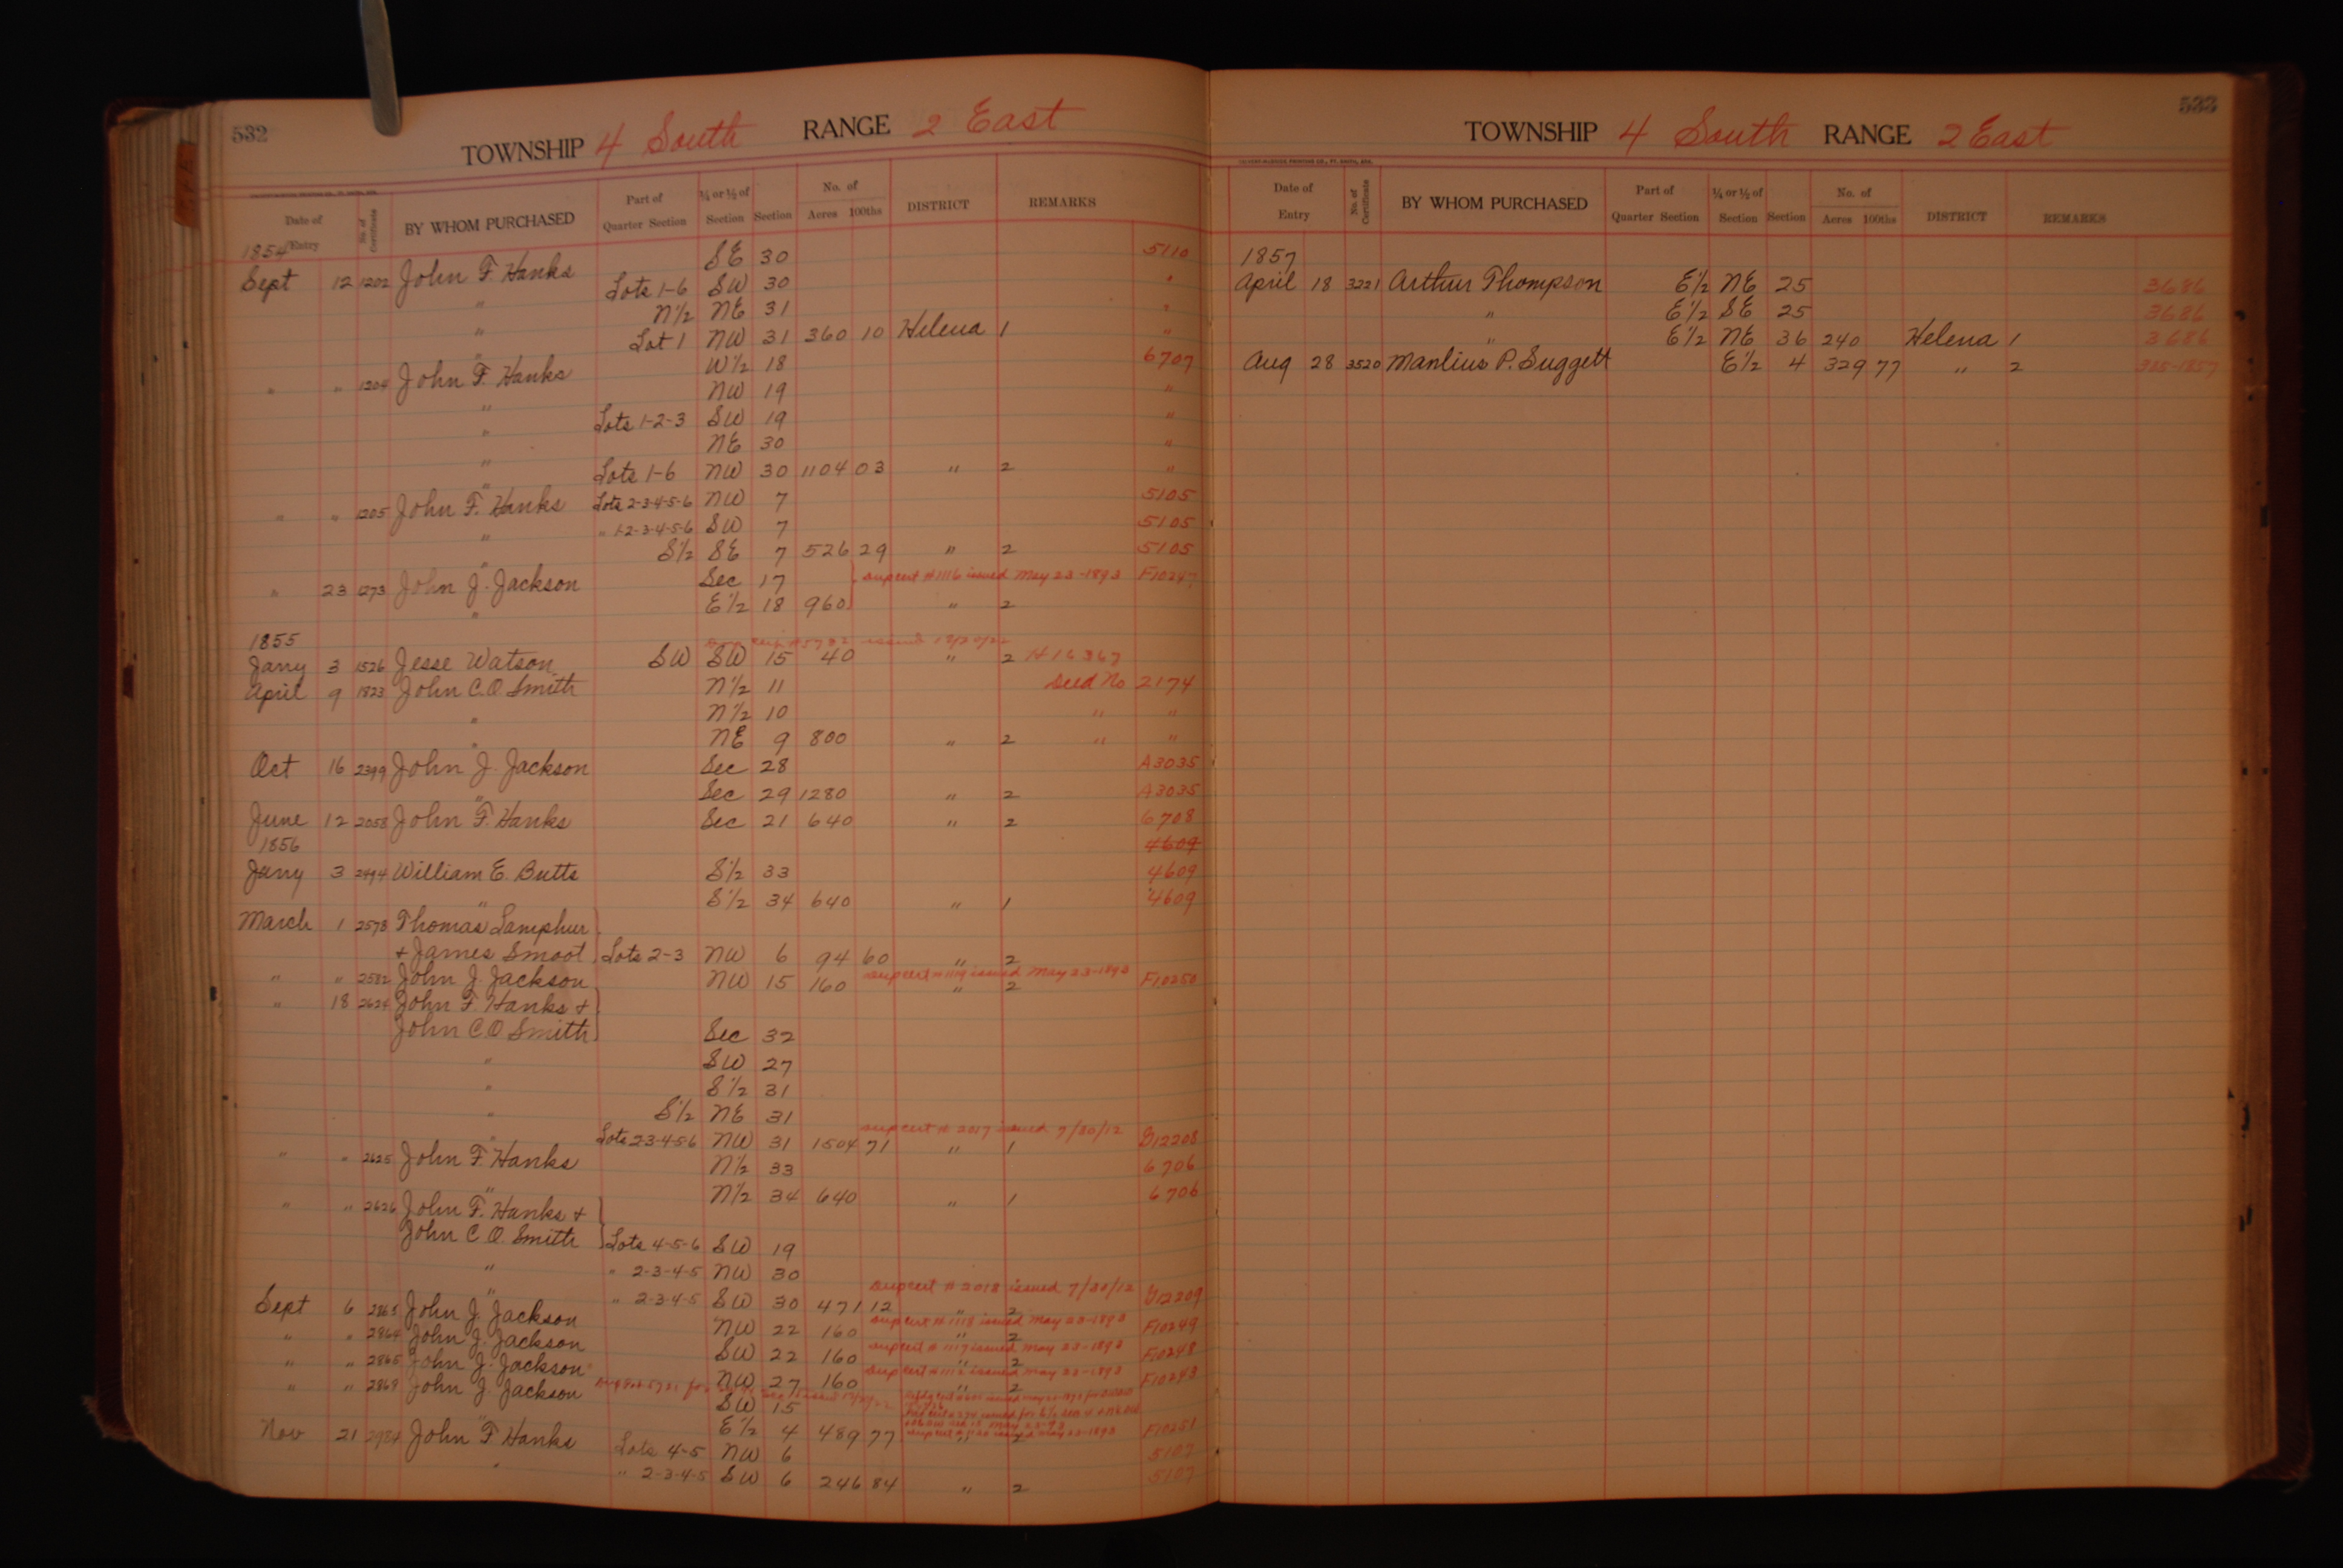 532
TOWNSHIP 4 South RANGE 2 East
Date of Entry No. of Certificate BY WHOM PURCHASED Part of Quarter Section ¼ or ½ of Section Section No. of Acres 100ths DISTRICT REMARKS
1854 SE 30 5110
Sept 12 1202 John F. Hanks Lots 1-6 SW 30 "
" N½ NE 31 "
" Lot 1 NW 31 360 10 Helena 1 "
" W½ 18 6707
" " 1204 John F. Hanks NW 19 "
" Lots 1-2-3 SW 19 "
" NE 30 "
" Lots 1-6 NW 30 1104 03 " 2 "
" " 1205 John F. Hanks Lots 2-3-4-5-6 NW 7 5105
" " 1-2-3-4-5-6 SW 7 5105
" S½ SE 7 526 29 " 2 5105
" 23 1273 John J. Jackson Sec 17 Dup cert #1116 issued May 23-1893 F10247
" E½ 18 960 " 2
1855
Jany 3 1526 Jesse Watson SW SW 15 40 " 2 H16367
April 9 1823 John C.O. Smith N½ 11 Deed No 2174
" N½ 10 " "
" NE 9 800 " 2 " "
Oct 16 2399 John J. Jackson Sec 28 A3035
" Sec 29 1280 " 2 A3035
June 12 2058 John F. Hanks Sec 21 640 " 2 6708
1856 4609
Jany 3 2494 William E. Butts S½ 33 4609
" S½ 34 640 " 1 4609
March 1 2578 Thomas Lamphur
+ James Smoot Lots 2-3 NW 6 94 60 " 2
" " 2582 John J. Jackson NW 15 160 Dup cert #1119 issued May 23-1893 " 2 F10250
" 18 2624 John F. Hanks +
John C.O. Smith Sec 32
" SW 27
" S½ 31
" S½ NE 31
" Lots 2-3-4-5-6 NW 31 1504 71 Dup cert # 2017 issued 7/30/12 " 1 G12208
" " 2625 John F. Hanks N½ 33 6706
" N½ 34 640 " 1 6706
" " 2626 John F. Hanks +
John C.O. Smith Lots 4-5-6 SW 19
" " 2-3-4-5 NW 30
" " 2-3-4-5 SW 30 471 12 Dup cert # 2018 issued 7/30/12 " 2 G12209
Sept 6 2863 John J. Jackson NW 22 160 Dup cert #1118 issued May 23-1893 " 2 F10249
" " 2864 John J. Jackson SW 22 160 Dup cert # 1117 issued May 23-1893 " 2 F10248
" " 2865 John J. Jackson NW 27 160 Dup cert #1112 issued May 23-1893 " 2 F10243
" " 2869 John J. Jackson SW 15
" E½ 4 489 77 Dup cert #1120 issued May 23-1893 " 2 F10251
Nov 21 2984 John F. Hanks Lots 4-5 NW 6 5107
" " 2-3-4-5 SW 6 246 84 " 2 5107
TOWNSHIP 4 South RANGE 2 East
Date of Entry No. of Certificate BY WHOM PURCHASED Part of Quarter Section ¼ or ½ of Section Section No. of Acres 100ths DISTRICT REMARKS
1857
April 18 3221 Arthur Thompson E½ NE 25 3686
" E½ SE 25 3686
" E½ NE 36 240 Helena 1 3686
Aug 28 3520 Manlius P. Suggett E½ 4 329 77 " 2